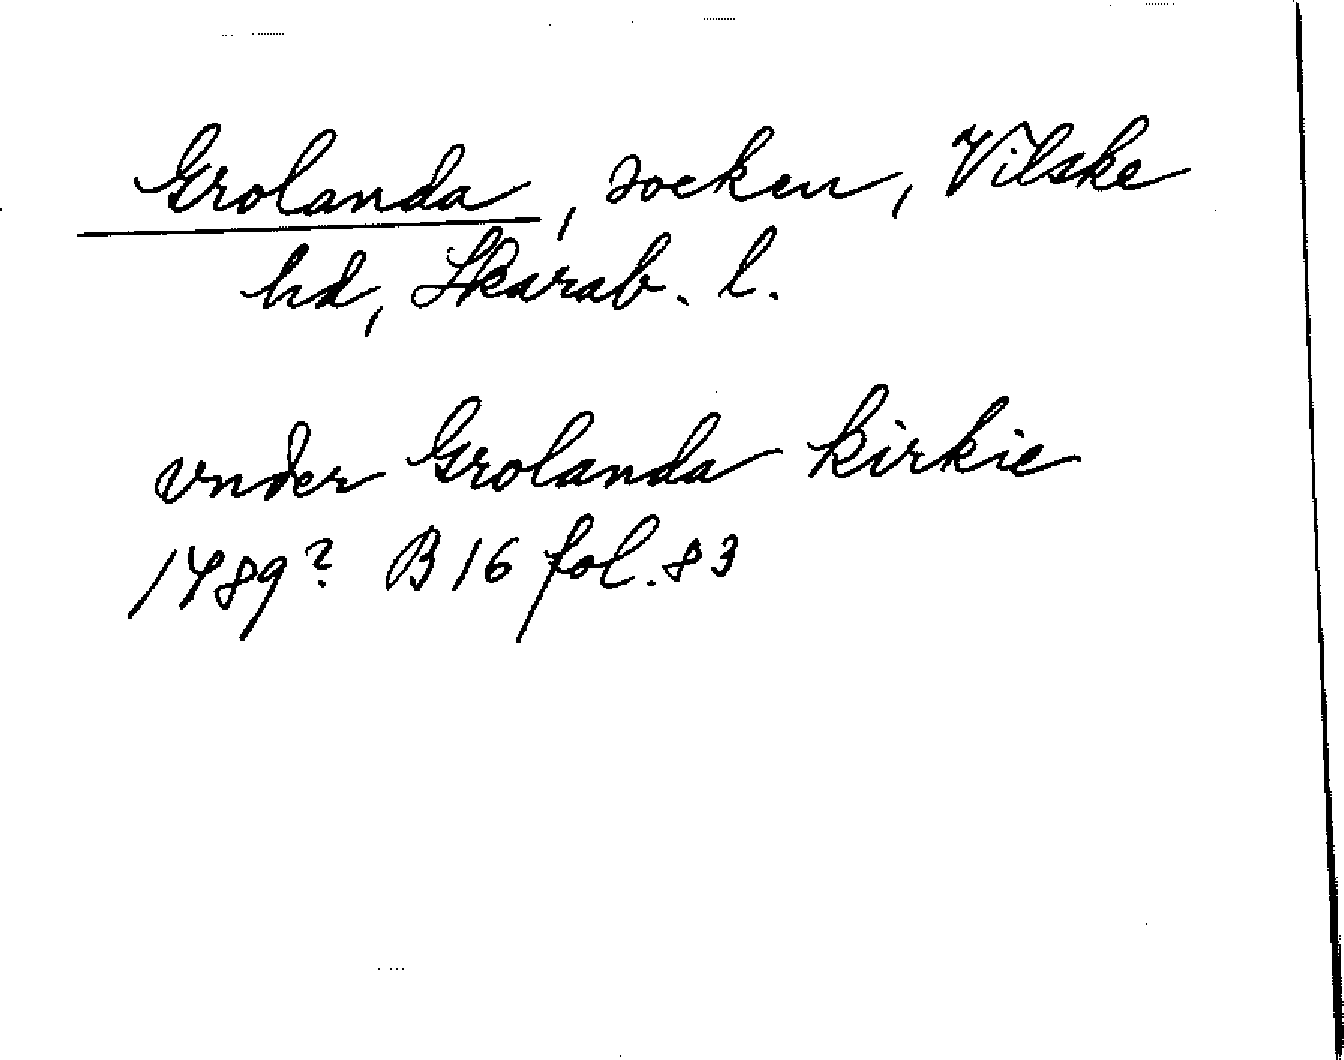 Grolanda, socken, Vilske
hd, Skarab. l.
vnder Grolanda kirkie
1489? B 16 fol. 83